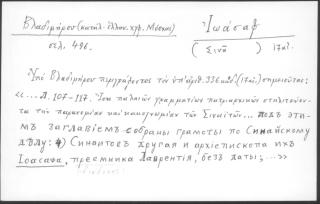 Βλαδιμήρου (κατάλ. ἑλλην. χγφ. Μόσχας)
σελ. 496.
Ἰωάσαφ
( Σινᾶ ) 17 αἰ.
Ὑπὸ Βλαδιμήρου περιγράφοντος τὸν ὑπ' ἀριθ. 336 κώδ (17 αἰ.) σημειοῦται:
«... Л. 107-117. Ἴσα παλαιῶν γραμμάτων πατριαρχικῶν στηλιτευόν-
τα τὴν παρανομίαν καὶ κακογνωμίαν τῶν Σιναϊτῶν... подъ эти-
мъ заглавіемъ собраны грамоты по Синайскому
дѣлу: Синаитовъ другая и архіепископа ихъ
Іоасафа, преемника Лаврентія, безъ даты; ...»